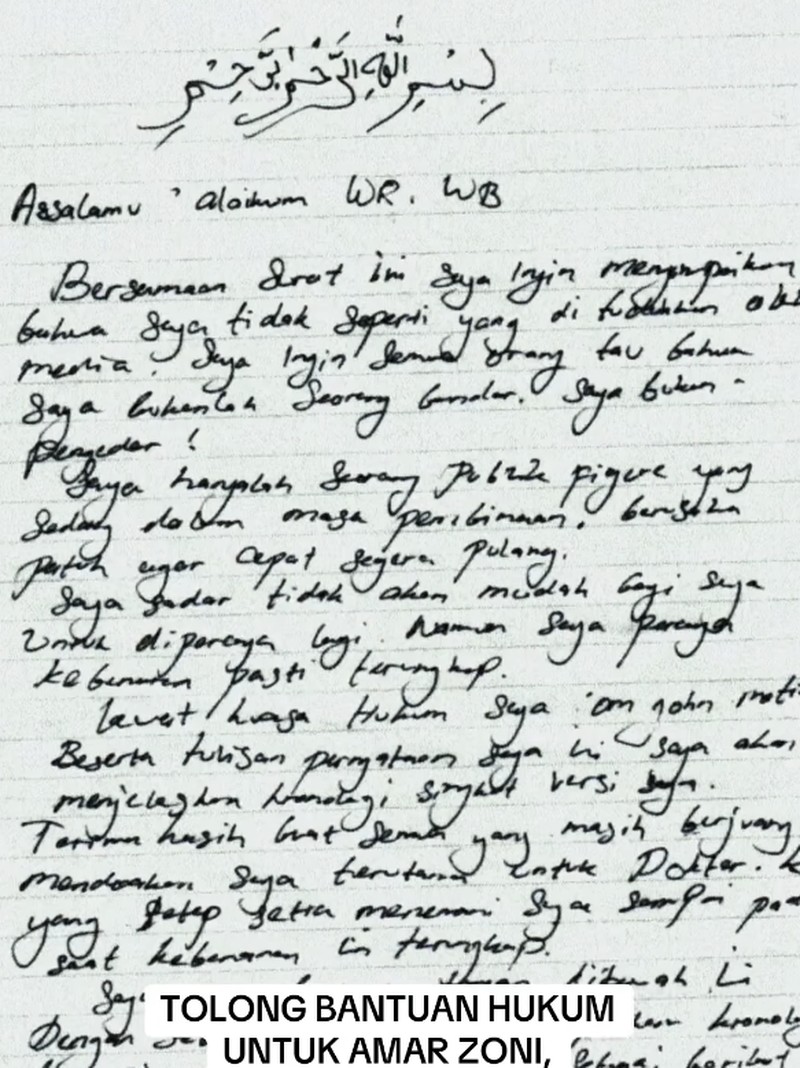 بسم الله الرحمن الرحيم
Assalamu 'alaikum WR. WB
Bersamaan Surat ini saya Ingin menyampaikan
bahwa saya tidak seperti yang di tuduhkan
media. Saya Ingin semua orang tau bahwa
saya bukanlah seorang bandar. Saya bukan -
pengedar !
Saya hanyalah seorang publik figure yang
sedang dalam masa pembinaan. berusaha
patuh agar cepat segera pulang.
Saya sadar tidak akan mudah bagi saya
Untuk dipercaya lagi. Namun saya percaya
kebenaran pasti terungkap.
Lewat kuasa Hukum saya om john
Beserta tulisan pernyataan saya ini saya akan
menjelaskan kronologi singkat versi saya.
Terima kasih buat semua yang masih berjuang
mendoakan saya terutama untuk Dokter.
yang tetap setia menemani saya sampai
saat kebenaran ini terungkap.
dibawah ini
Dengan
TOLONG BANTUAN HUKUM
UNTUK AMAR ZONI,
sebagai berikut